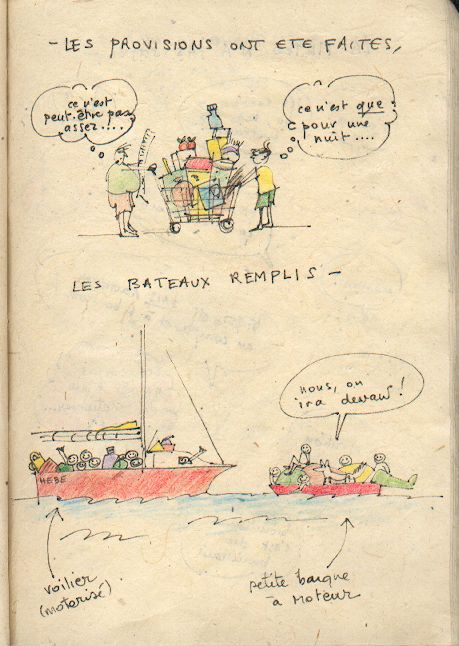 - LES PROVISIONS ONT ETE FAITES,
ce n'est
peut-être pas
assez....
ce n'est que
pour une
nuit....
LES BATEAUX REMPLIS -
nous, on
ira devant !
HEBE
voilier
(motorisé)
petite barque
à moteur